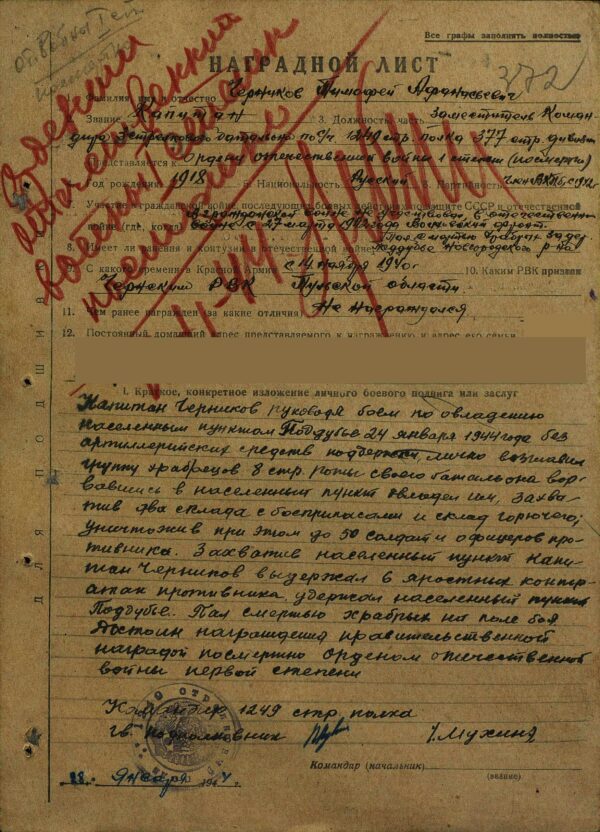 Все графы заполнять полностью
372
НАГРАДНОЙ ЛИСТ
Фамилия, имя и отчество Черников Тимофей Афанасьевич
Звание Капитан 3. Должность часть заместитель Коман-
дира Зстрелкового батальона по п/ч 1249 стр. полка 377 стр. дивизии
Представляется к Ордену отечественной войны 1 степени (посмертно)
Год рождения 1918 5. Национальность Русский 6. Партийность
7. Участие в гражданской войне, последующих боевых действиях по защите СССР и отечественной
войне (где, когда) В гражданской войне не участвовал, в отечественной
войне с 27 марта 1942 года Волховский фронт.
8. Имеет ли ранения и контузии в отечественной войне Пал смертью храбрых за дер.
Поддубье Новгородского р-на
9. С какого времени в Красной Армии с 14 ноября 1940г 10. Каким РВК призван
Чернским РВК Тульской области
11. Чем ранее награжден (за какие отличия) Не награждался
12. Постоянный домашний адрес представляемого к награждению и адрес его семьи
I. Краткое, конкретное изложение личного боевого подвига или заслуг
Капитан Черников руководя боем по овладению
населенным пунктом Поддубье 24 января 1944 года без
артиллерийских средств поддержки, лично возглавил
группу храбрецов 8 стр. роты своего батальона вор-
вавшись в населенный пункт овладел им, захва-
тив два склада с боеприпасами и склад горючего,
уничтожив при этом до 50 солдат и офицеров про-
тивника. Захватив населенный пункт капи-
тан Черников выдержал 8 яростных контр-
атак противника, удержал населенный пункт
Поддубье. Пал смертью храбрых на поле боя
Достоин награждения правительственной
наградой посмертно орденом отечественной
войны первой степени
Командир 1249 стр. полка
гв. подполковник Мухин
Командир (начальник)
(звание)
28 января 1944 г.
ДЛЯ ПОДШИВКИ